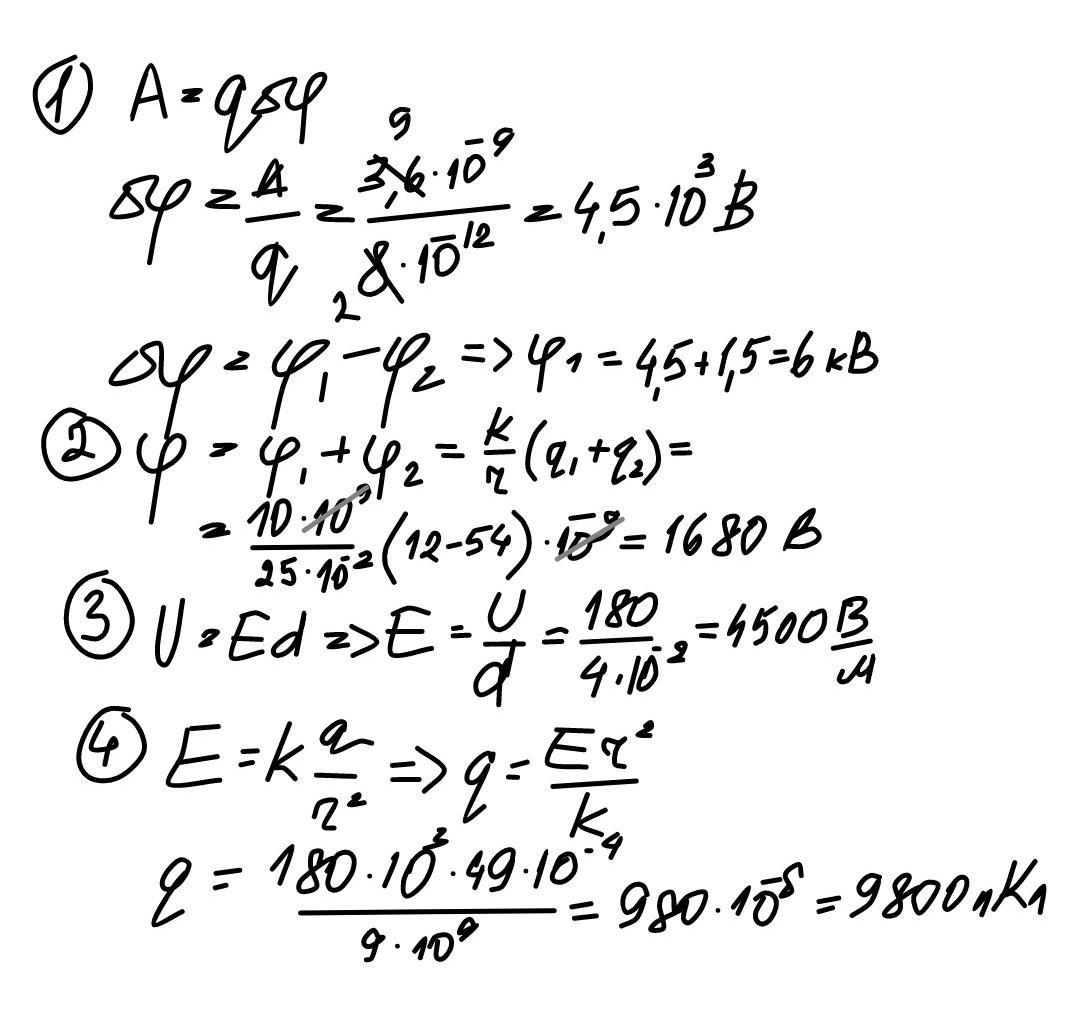 ① A = qΔφ
Δφ = A/q = 3,6·10⁻⁹ / 8·10⁻¹² = 4,5·10³ В
9
2
Δφ = φ₁ − φ₂ => φ₁ = 4,5 + 1,5 = 6 кВ
② φ = φ₁ + φ₂ = k/r (q₁ + q₂) =
= 10·10⁹ / 25·10⁻² (12−54)·10⁻⁹ = 1680 В
③ U = Ed => E = U/d = 180 / 4·10⁻² = 4500 В/м
④ E = k q/r² => q = Er²/k
q = 180·10³·49·10⁻⁴ / 9·10⁹ = 980·10⁻⁸ = 9800 нКл